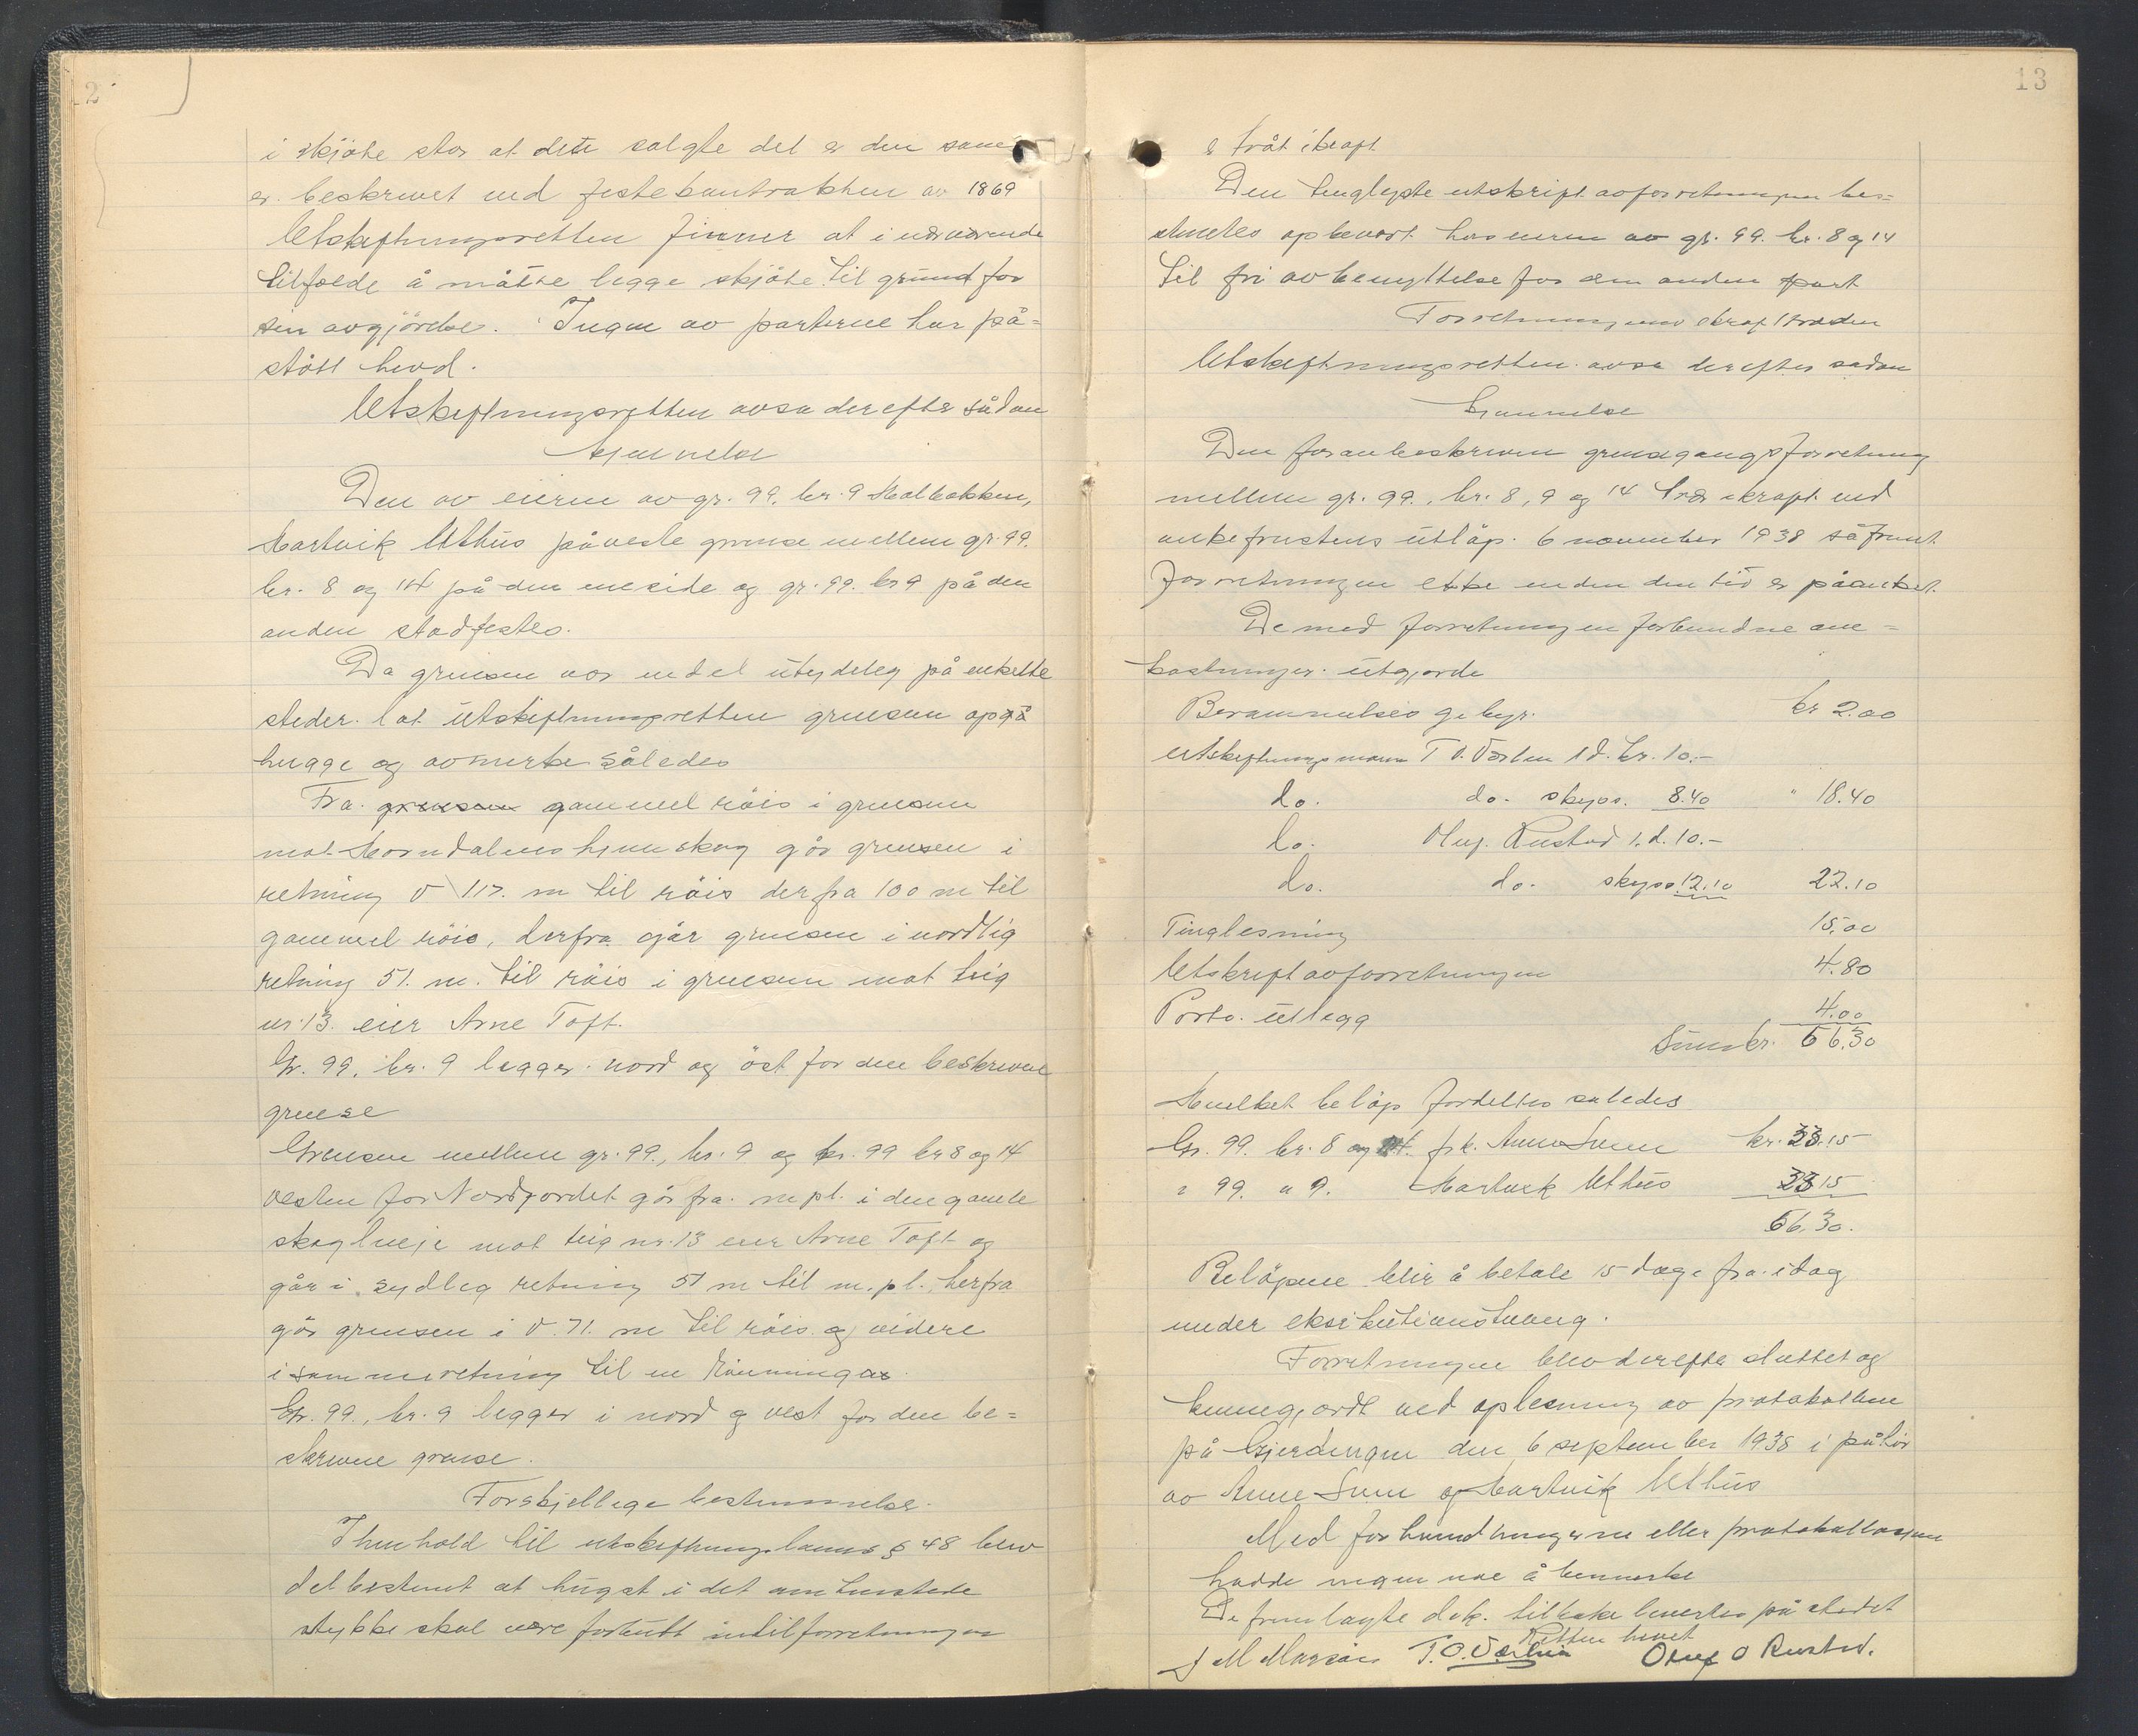 12
i skjöte står at dette solgte del er den samme
er beskrevet ved festekontrakten av 1869
Utskiftningsretten finner at i nærværende
tilfælde å måtte legge skjöte til grund for
sin avgjörelse. Ingen av parterne har på=
stått hevd.
Utskiftningsretten avsa derefter sådan
kjennelse
Den av eieren av gr. 99, br. 9 Halbakken,
Hartvik Uthus påveste grense mellem gr. 99.
br. 8 og 14 på den ene side og gr. 99. br 9 på den
anden stadfestes.
Da grensen var endel utydeleg på enkelte
steder. lot Utskiftningsretten grensen opgå
hugge og avmerke således
Fra grensen gammel röis i grensen
mot Horndalens hjemskog går grensen i
retning V 117. m til röis derfra 100 m til
gammel röis, derfra går grensen i nordlig
retning 51. m. til röis i grensen mot teig
nr. 13. eier Arne Toft.
Gr. 99, br. 9 legger nord og öst for den beskrevne
grense
Grensen mellem gr. 99., br. 9 og gr. 99 br 8 og 14
vesten for Nordjordet går fra m pl. i den gamle
skogl i mot teig nr. 13 eier Arne Toft og
går i sydleg retning 51 m til m. pl. herfra
går grensen i V. 71. m til röis og videre
i samme retning til en
Gr. 99., br. 9 legger i nord og vest for den be=
skrevne grense.
Forskjellige bestemmelse.
I henhold til utskiftningslovens § 48 blev
det bestemt at hugst i det omtvistede
stykke skal være forbutt indtil forretningen
13
er tråt i kraft
Den tinglyste utskript av forretningen bes=
stemtes opbevart hos eieren av gr. 99. br. 8 og 14
til fri avbenyttelse for den anden part
Forretningens ikrafttræden
Utskiftningsretten avsa derefter sådan
kjennelse
Den foranbeskrevne grensegangsforretning
mellem gr. 99., br. 8, 9 og 14 trær ikraft ved
ankefristens utlöp. 6 november 1938 såfremt
forretningen ikke inden den tid er påanket.
De med forretningen forbundne om=
kostninger utgjorde
Berammelses gebyr. kr 2.00
Utskiftningsmann T O. Værlien 1 d. kr. 10.-
do. do. skyss. 8.40 " 18.40
do. Oluf. Rustad 1. d. 10.-
do. do. skyss 12.10 22.10
Tinglesning 15.00
Utskript av forretningen 4.80
Porto. utlegg 4.00
Sum kr. 66.30
Hvilket belöp fordeltes således
Gr. 99. br. 8 og 14. frk. Anne Svern kr. 33.15
" 99. " 9. Hartvik Uthus 33.15
66.30.
Belöpene blir å betale 15 dage fra idag
under eksikutionstvang.
Forretningen blev derefter sluttet og
kunngjordt ved oplesning av protokollen
på Gjerdingen den 6 september 1938 i påhör
av Anne Svern og Hartvik Uthus
Med forhandlingerne eller protokollasjonen
hadde ingen noe å bemerke
De fremlagte dok. tilbakeleverte på stedet
Retten hevet
J M T. O. Værlien Oluf O Rustad.